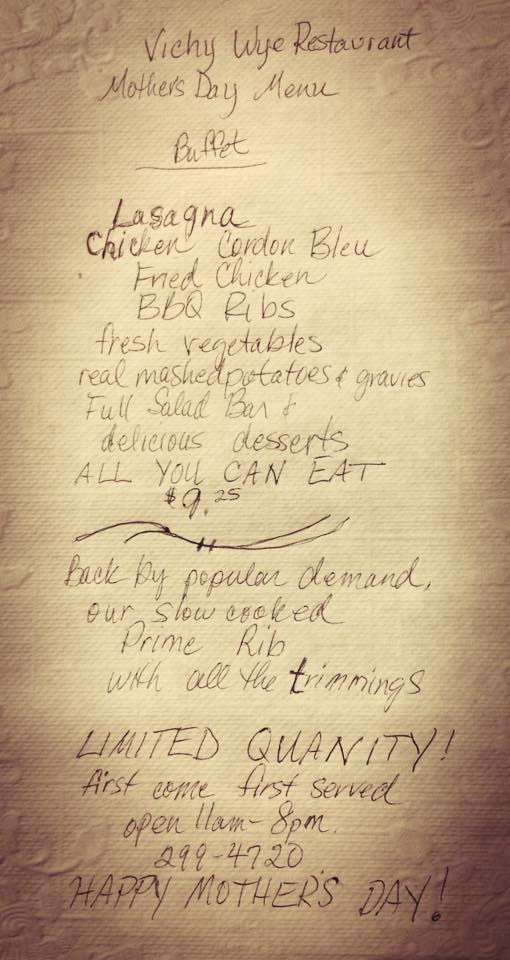 Vichy Wye Restaurant
Mother's Day Menu
Buffet
Lasagna
Chicken Cordon Bleu
Fried Chicken
BBQ Ribs
fresh vegetables
real mashed potatoes & gravies
Full Salad Bar &
delicious desserts
ALL YOU CAN EAT
$9.25
Back by popular demand,
our slow cooked
Prime Rib
with all the trimmings
LIMITED QUANITY!
first come first served
open 11am - 8pm.
299-4720
HAPPY MOTHER'S DAY!